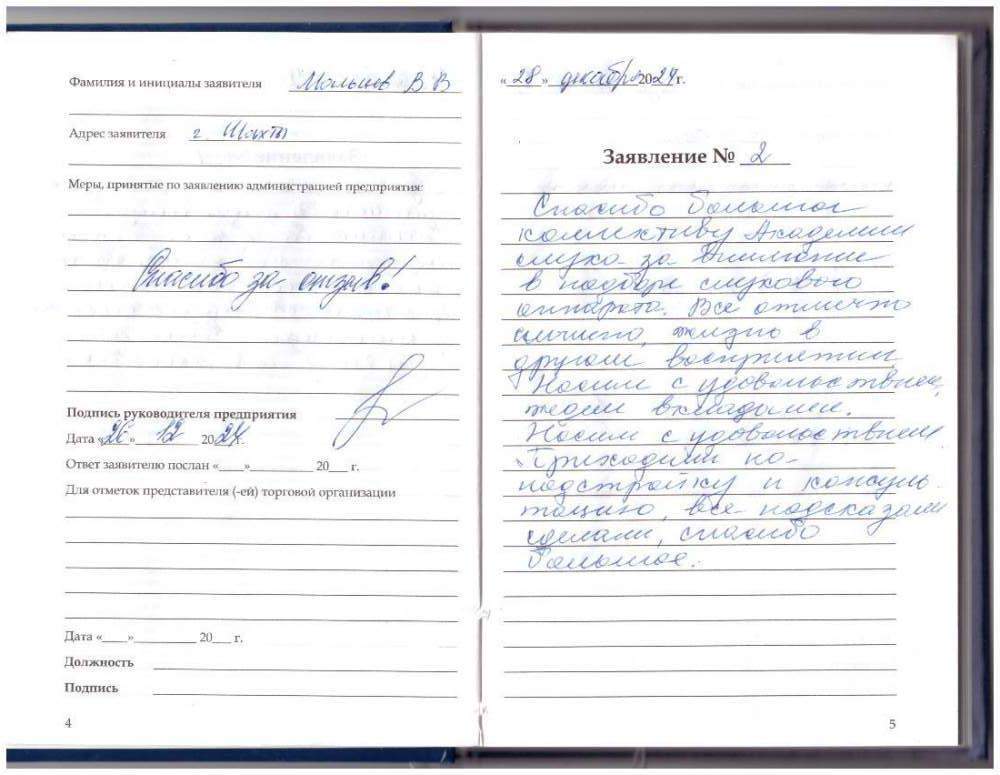 Фамилия и инициалы заявителя Малышев В В
Адрес заявителя г. Шахты
Меры, принятые по заявлению администрацией предприятия:
Спасибо за отзыв!
Подпись руководителя предприятия
Дата «26» 12 2024г.
Ответ заявителю послан «____»__________ 20___ г.
Для отметок представителя (-ей) торговой организации
Дата «____»__________ 20___ г.
Должность
Подпись
4
«28» декабря 2024г.
Заявление № 2
Спасибо большое
коллективу Академии
слуха за внимание
в подборе слухового
аппарата. Все отлично
слышно, жизнь в
другом восприятии
Носим с удовольствием,
вкладыши.
Носим с удовольствием
Приходили на
подстройку и консуль-
тацию, все подсказали
сделали, спасибо
большое.
5